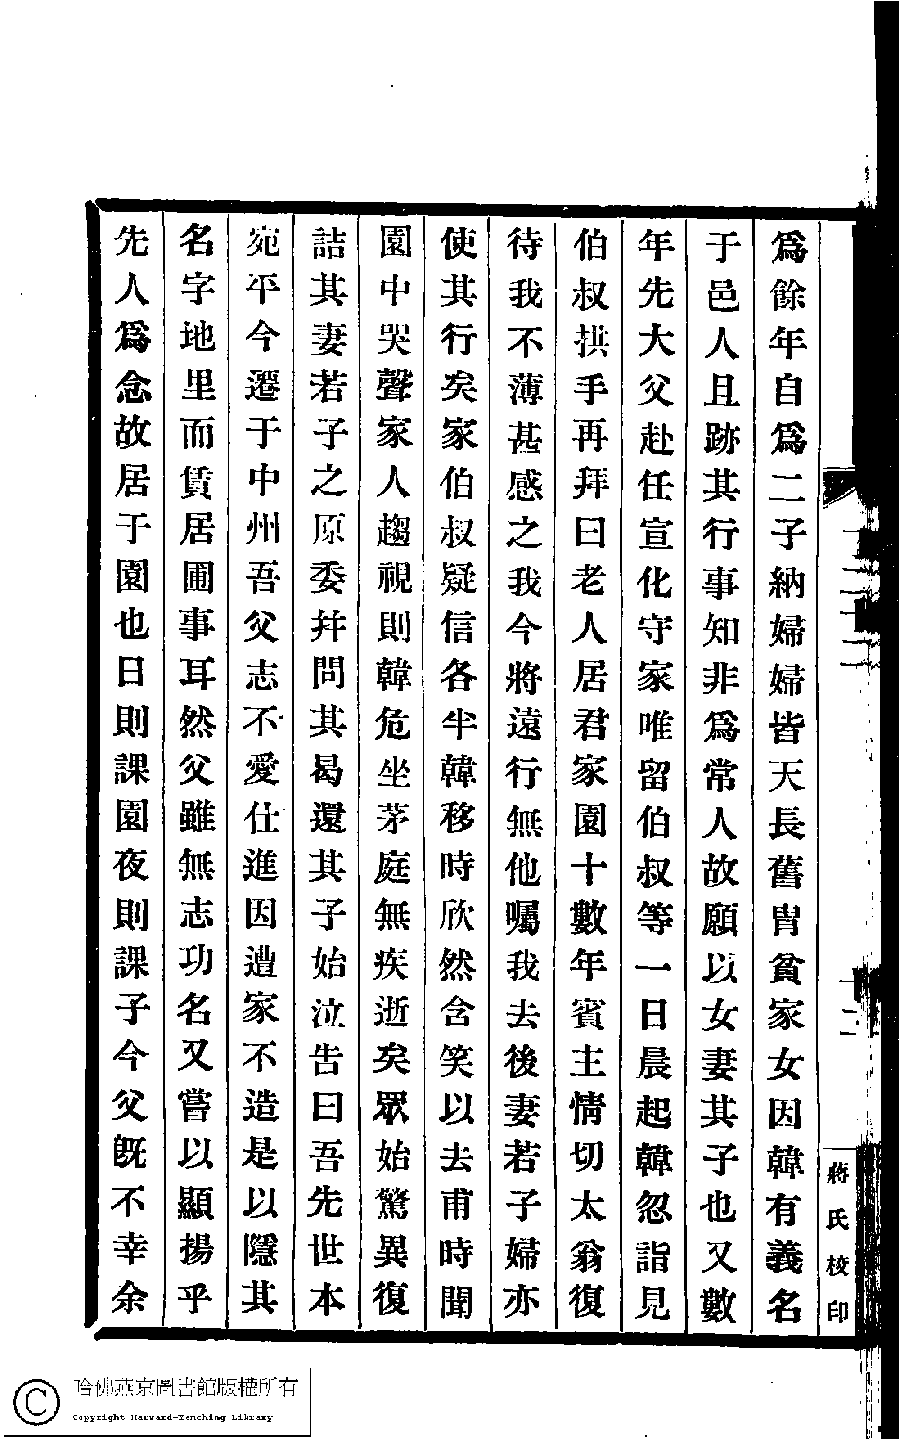 爲餘年自爲二子納婦婦皆天長舊胄貧家女因韓有義名
于邑人且跡其行事知非爲常人故願以女妻其子也又數
年先大父赴任宣化守家唯留伯叔等一日晨起韓忽詣見
伯叔拱手再拜曰老人居君家園十數年賓主情切太翁復
待我不薄甚感之我今將遠行無他囑我去後妻若子婦亦
使其行矣家伯叔疑信各半韓移時欣然含笑以去甫時聞
園中哭聲家人趨視則韓危坐茅庭無疾逝矣眾始驚異復
詰其妻若子之原委幷問其曷還其子始泣告曰吾先世本
宛平今遷于中州吾父志不愛仕進因遭家不造是以隱其
名字地里而賃居圃事耳然父雖無志功名又嘗以顯揚乎
先人爲念故居于園也日則課園夜則課子今父旣不幸余
蔣氏校印
哈佛燕京圖書館版權所有
Copyright Harvard-Yenching Library